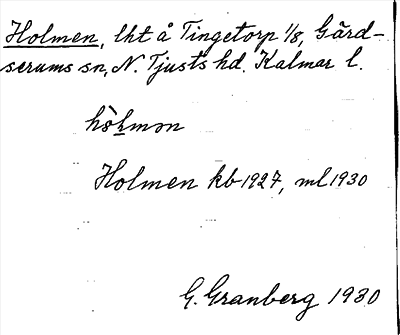 Holmen, lht å Tingetorp 1/8, Gärd-
serums sn, N. Tjusts hd. Kalmar l.
hòlmən
Holmen kb 1927, ml 1930
G. Granberg 1930